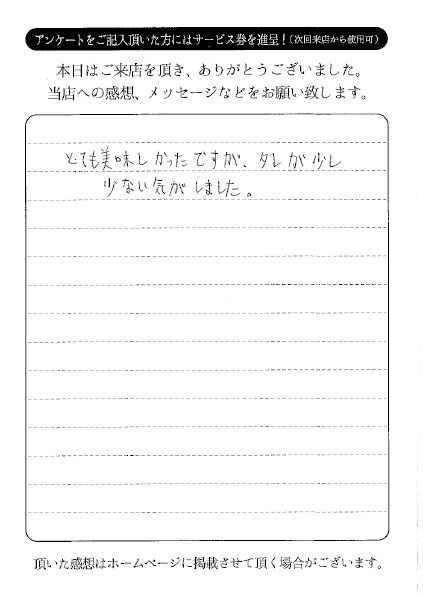 アンケートをご記入頂いた方にはサービス券を進呈！(次回来店から使用可)
本日はご来店を頂き、ありがとうございました。
当店への感想、メッセージなどをお願い致します。
とても美味しかったですが、タレが少し
少ない気がしました。
頂いた感想はホームページに掲載させて頂く場合がございます。